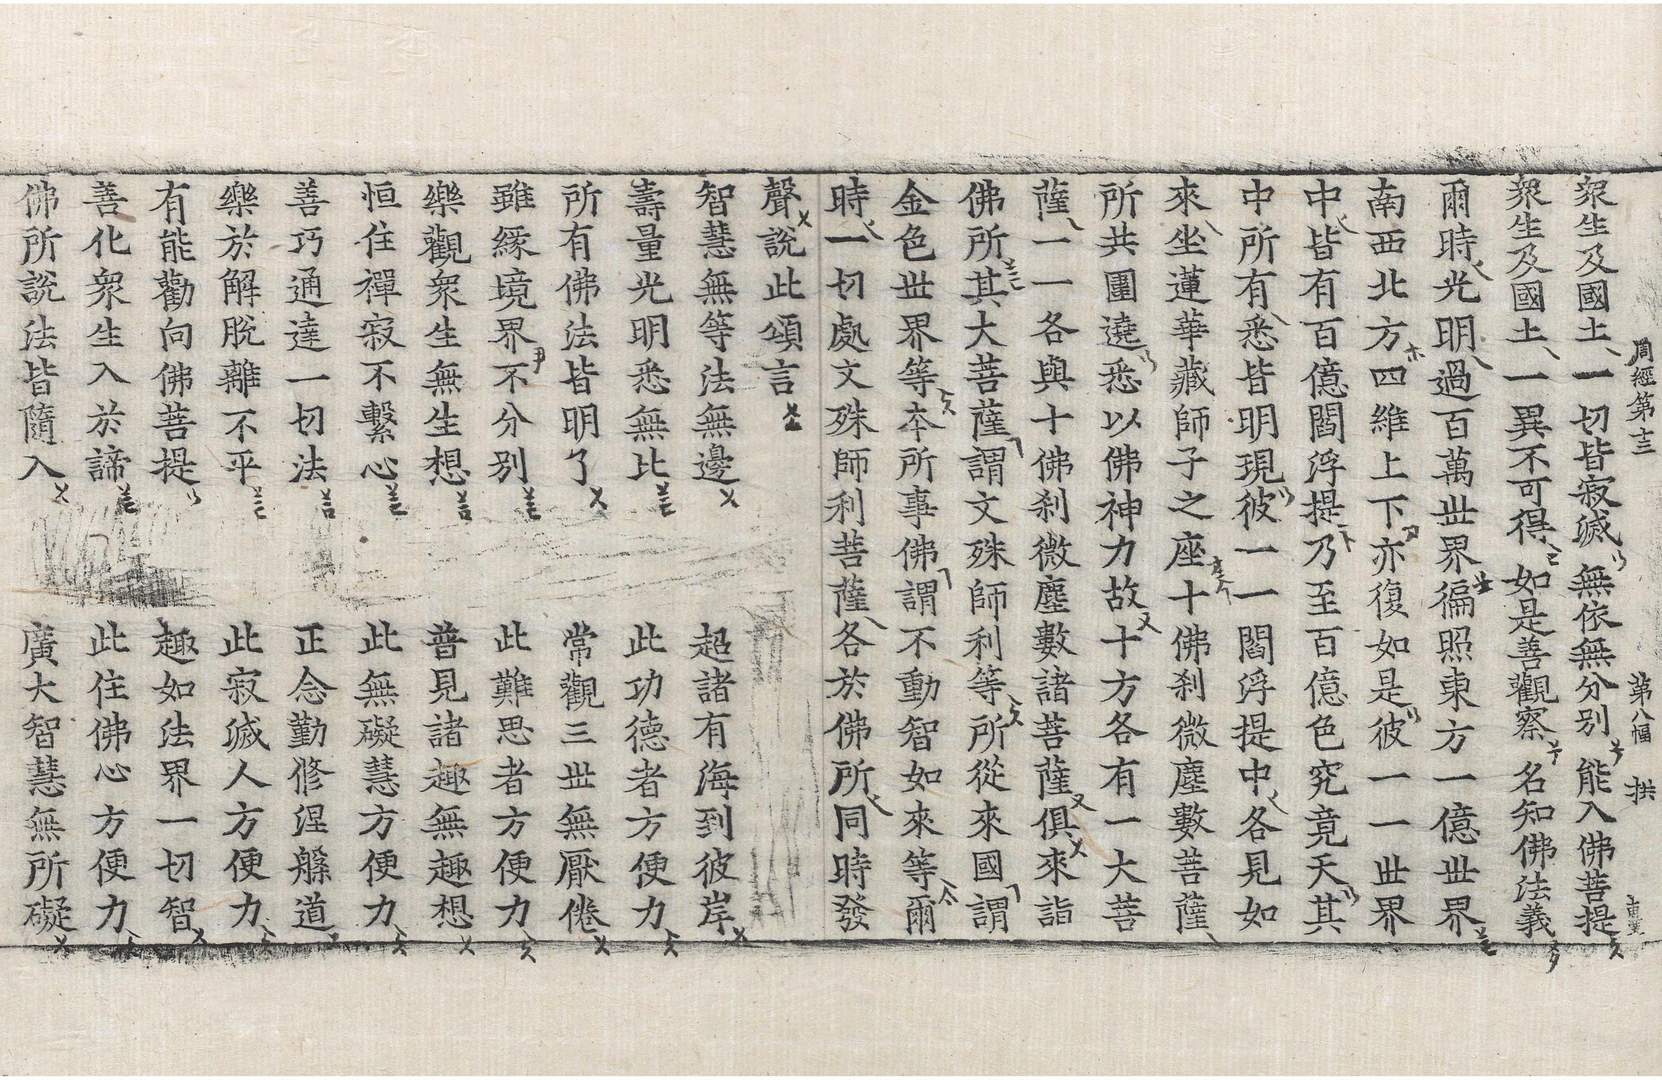 周經第十三 第八幅 拱
衆生及國土 一切皆寂滅 無依無分別 能入佛菩提
衆生及國土 一異不可得 如是善觀察 名知佛法義
爾時光明過百萬世界徧照東方一億世界
南西北方四維上下亦復如是彼一一世界
中皆有百億閻浮提乃至百億色究竟天其
中所有悉皆明現彼一一閻浮提中各見如
來坐蓮華藏師子之座十佛刹微塵數菩薩
所共圍遶悉以佛神力故十方各有一大菩
薩一一各與十佛刹微塵數諸菩薩俱來詣
佛所其大菩薩謂文殊師利等所從來國謂
金色世界等本所事佛謂不動智如來等爾
時一切處文殊師利菩薩各於佛所同時發
聲說此頌言
智慧無等法無邊 超諸有海到彼岸
壽量光明悉無比 此功德者方便力
所有佛法皆明了 常觀三世無厭倦
雖緣境界不分別 此難思者方便力
樂觀衆生無生想 普見諸趣無趣想
恒住禪寂不繫心 此無礙慧方便力
善巧通達一切法 正念勤修涅槃道
樂於解脫離不平 此寂滅人方便力
有能勸向佛菩提 趣如法界一切智
善化衆生入於諦 此住佛心方便力
佛所說法皆隨入 廣大智慧無所礙